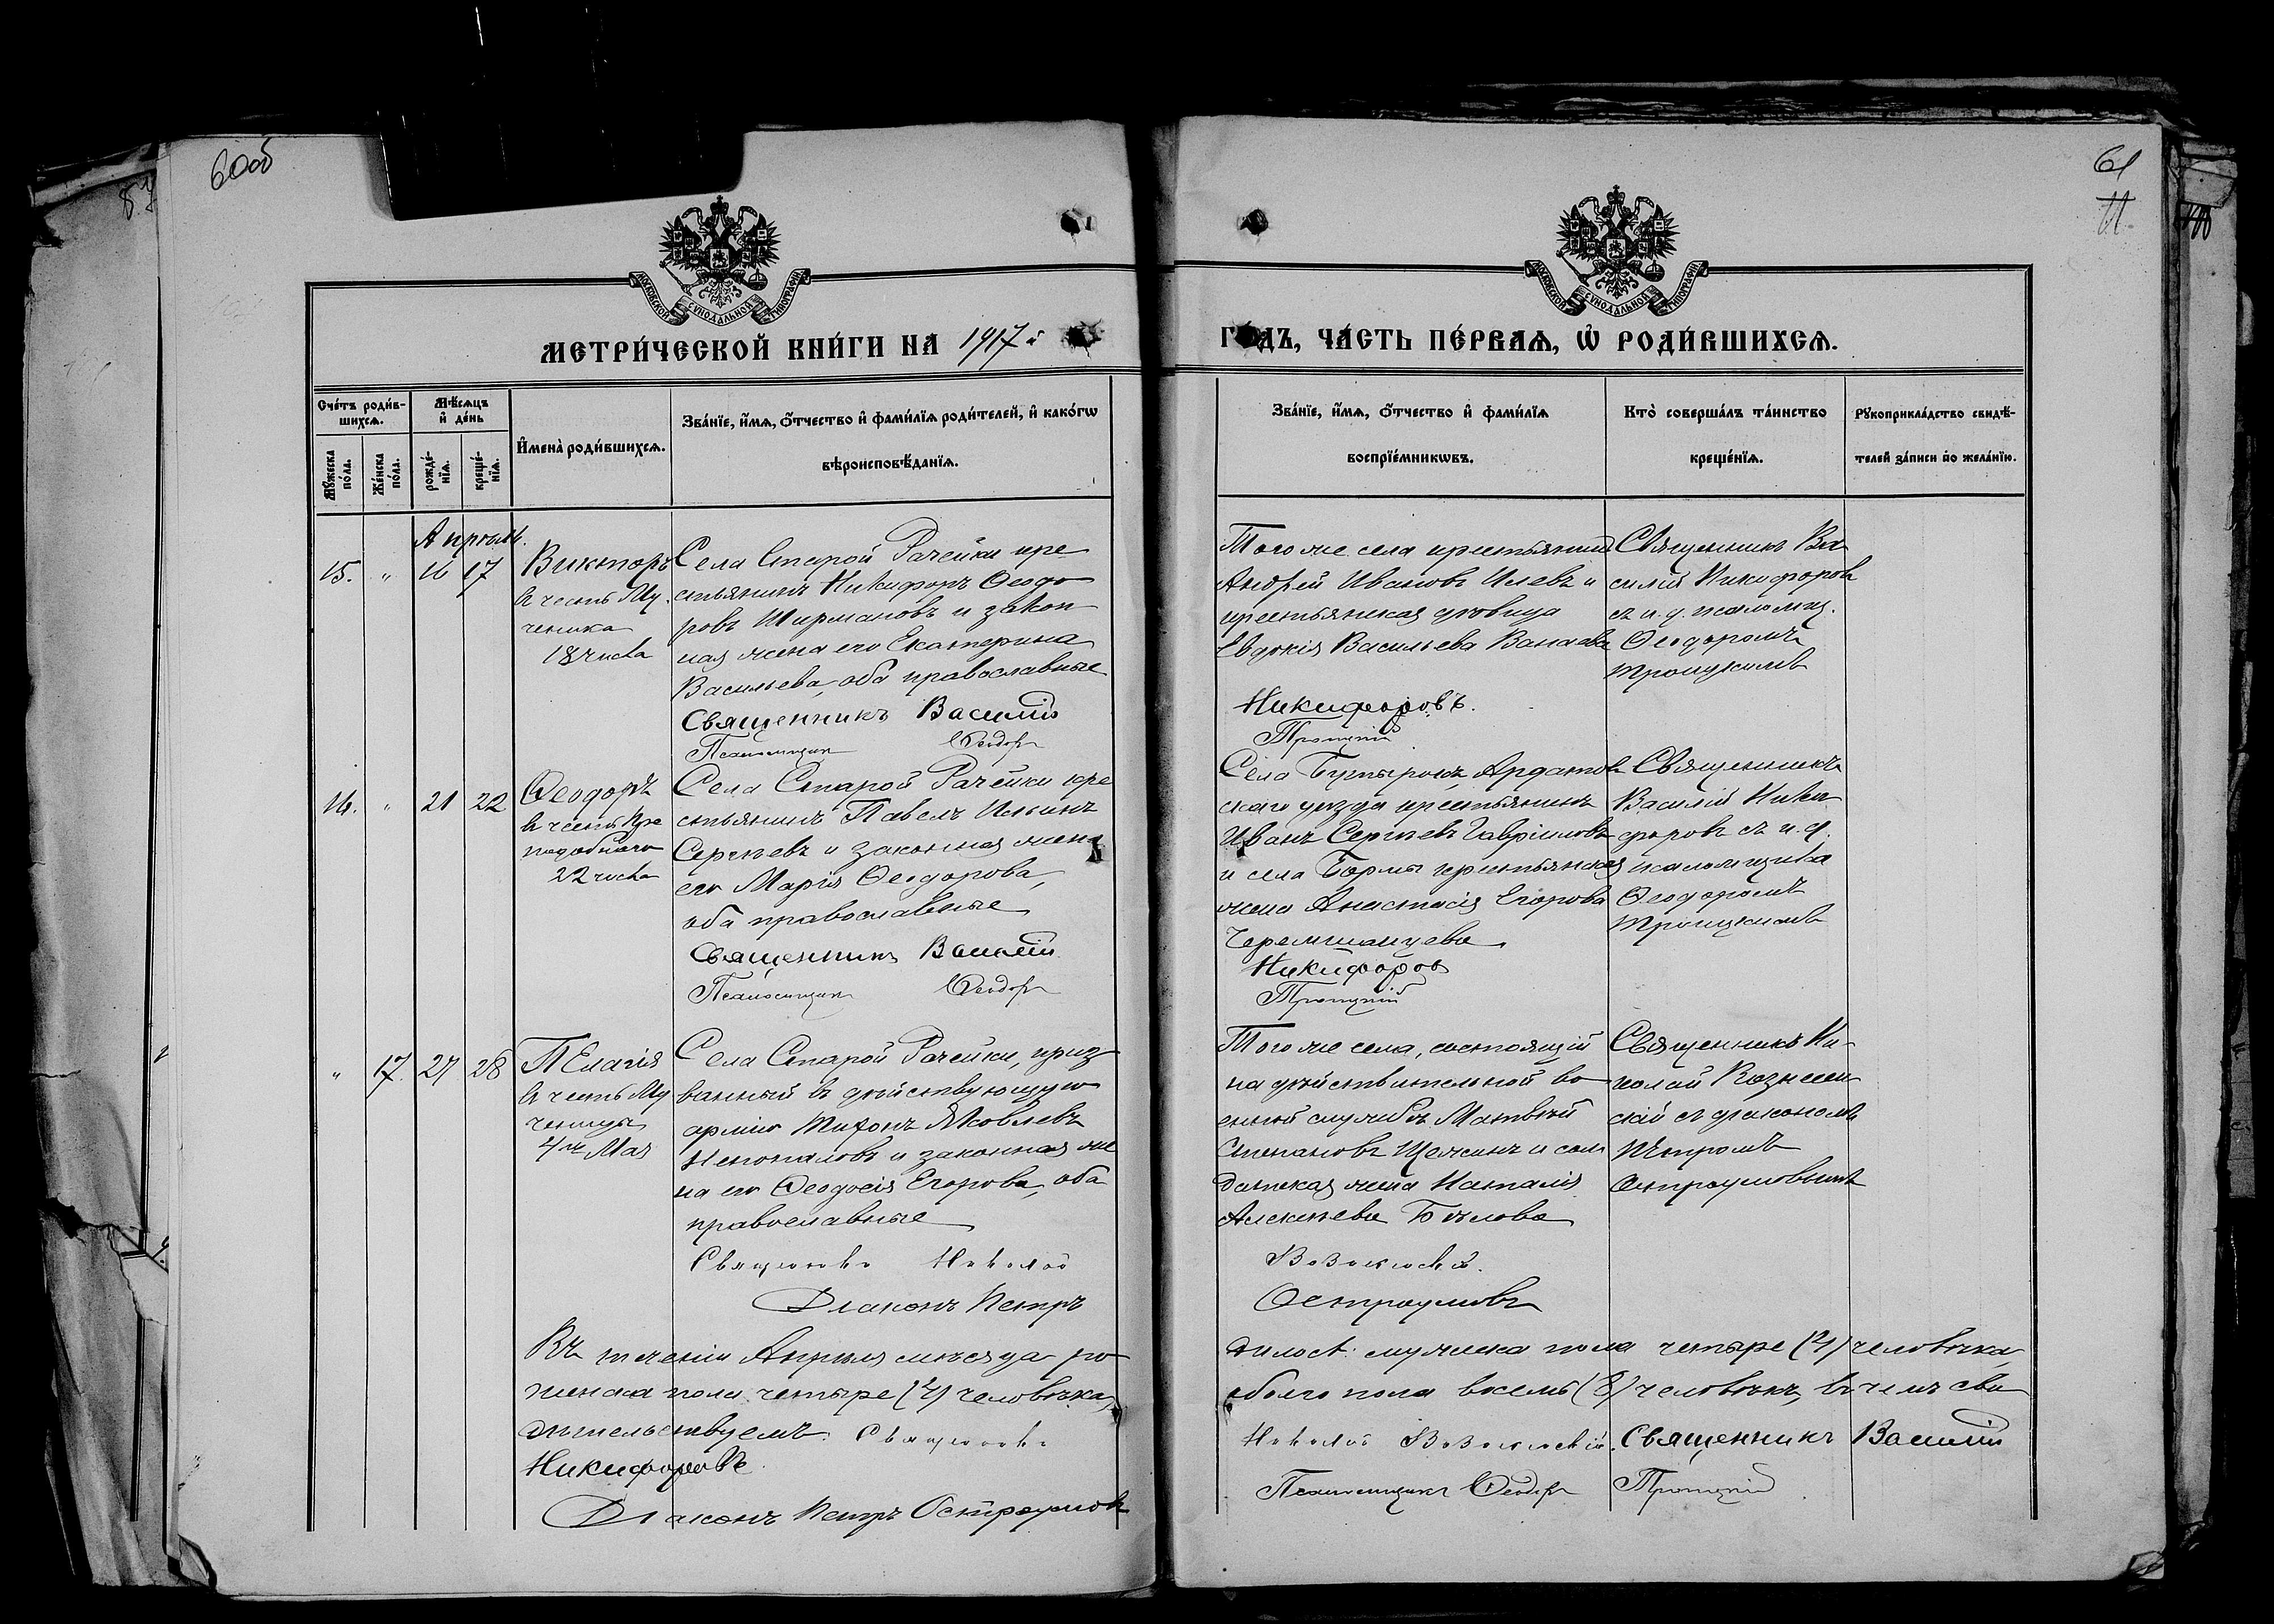 60об
61
11
МОСКОВСКОЙ СѴНОДАЛЬНОЙ ТИПОГРАФІИ
МОСКОВСКОЙ СѴНОДАЛЬНОЙ ТИПОГРАФІИ
МЕТРИ́ЧЕСКОЙ КНИ́ГИ НА 1917й
ГОДЪ, ЧА́СТЬ ПЕ́РВАѦ, Ѡ҆ РОДИ́ВШИХСѦ.
Сче́тъ роди́в-
шихсѧ.
Мѣ́сѧцъ
и҆ де́нь
Мꙋ́жеска
по́ла.
Же́нска
по́ла.
рожде́-
нїѧ.
креще́-
нїѧ.
И҆мена̀ роди́вшихсѧ.
Зва́нїе, и҆́мѧ, о҆́тчество и҆ фами́лїѧ роди́телей, и҆ како́гѡ
вѣроисповѣ́данїѧ.
Зва́нїе, и҆́мѧ, о҆́тчество и҆ фами́лїѧ
воспрїе́мникѡвъ.
Кто̀ соверша́лъ та́инство
креще́нїѧ.
Рꙋкоприкла́дство свидѣ́-
телей за́писи по жела́нїю.
Апрѣль.
15. " 16 17
Викторъ
въ честь Му-
ченика
18 числа
Села Старой Рачейки кре
стьянинъ Никифоръ Ѳеодо
ровъ Ширмановъ и закон
ная жена его Екатерина
Васильева, оба православные
Священникъ Василій
Псаломщикъ Ѳеодоръ
Того же села крестьянинъ
Андрей Ивановъ Илевъ и
крестьянская дѣвица
Евдокія Васильева Ванаева
Никифоровъ.
Троицкій
Священникъ Ва
силій Никифоровъ
съ и.д. псаломщ.
Ѳеодоромъ
Троицкимъ
16. " 21 22
Ѳеодоръ
въ честь Пре
подобнаго
22 числа
Села Старой Рачейки кре
стьянинъ Павелъ Ильинъ
Сергѣевъ и законная жена
его Марія Ѳеодорова,
оба православные
Священникъ Василій
Псаломщикъ Ѳеодоръ
Села Бутырокъ, Ардатов
скаго уѣзда крестьянинъ
Иванъ Сергѣевъ Гавриловъ
и села Бормы крестьянская
жена Анастасія Егорова
Черемшанцева
Никифоровъ
Троицкій
Священникъ
Василій Ники
форовъ съ и.д.
псаломщика
Ѳеодоромъ
Троицкимъ
" 17. 27 28
Пелагія
въ честь Му
ченицы
4го Мая
Села Старой Рачейки, приз
ванный въ дѣйствующую
армію Тихонъ Яковлевъ
Непопаловъ и законная же
на его Ѳеодосія Егорова, оба
православные
Священникъ Николай
Діаконъ Петръ
Того же села, состоящій
на дѣйствительной во
енной службѣ Матвѣй
Степановъ Щелкинъ и сол
датская жена Наталія
Алексѣева Бѣлова
Вознесенскій.
Остроумовъ
Священникъ Ни-
колай Вознесен
скій съ діакономъ
Петромъ
Остроумовымъ
Въ теченіи Апрѣля мѣсяца ро
дилось: мужеска пола четыре (4) человѣка,
женска пола четыре (4) человѣка,
обоего пола восемь (8) человѣкъ, въ чемъ сви
дѣтельствуемъ: Священникъ
Николай Вознесенскій. Священникъ Василій
Никифоровъ.
Псаломщикъ Ѳеодоръ Троицкій
Діаконъ Петръ Остроумовъ